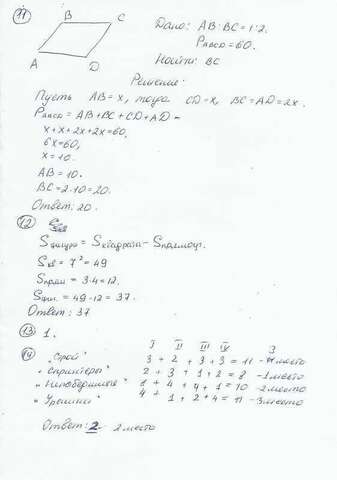 11
B C
A D
Дано: AB:BC = 1:2.
PABCD = 60.
Найти: BC
Решение:
Пусть AB = x, тогда CD = x, BC = AD = 2x.
PABCD = AB + BC + CD + AD =
x + x + 2x + 2x = 60,
6x = 60,
x = 10.
AB = 10.
BC = 2·10 = 20.
Ответ: 20.
12
Sфигуры = Sквадрата - Sпрямоуг.
Sкв = 7² = 49
Sпрям = 3·4 = 12.
Sфиг. = 49 - 12 = 37.
Ответ: 37
13 1.
I II III IV
14 "Строй" 3 + 2 + 3 + 3 = 11 - место
"Спринтеры" 2 + 3 + 1 + 2 = 8 - 1 место
1 + 4 + 4 + 1 = 10 - 2 место
4 + 1 + 2 + 4 = 11 - 3 место
Ответ: 2. 2 место